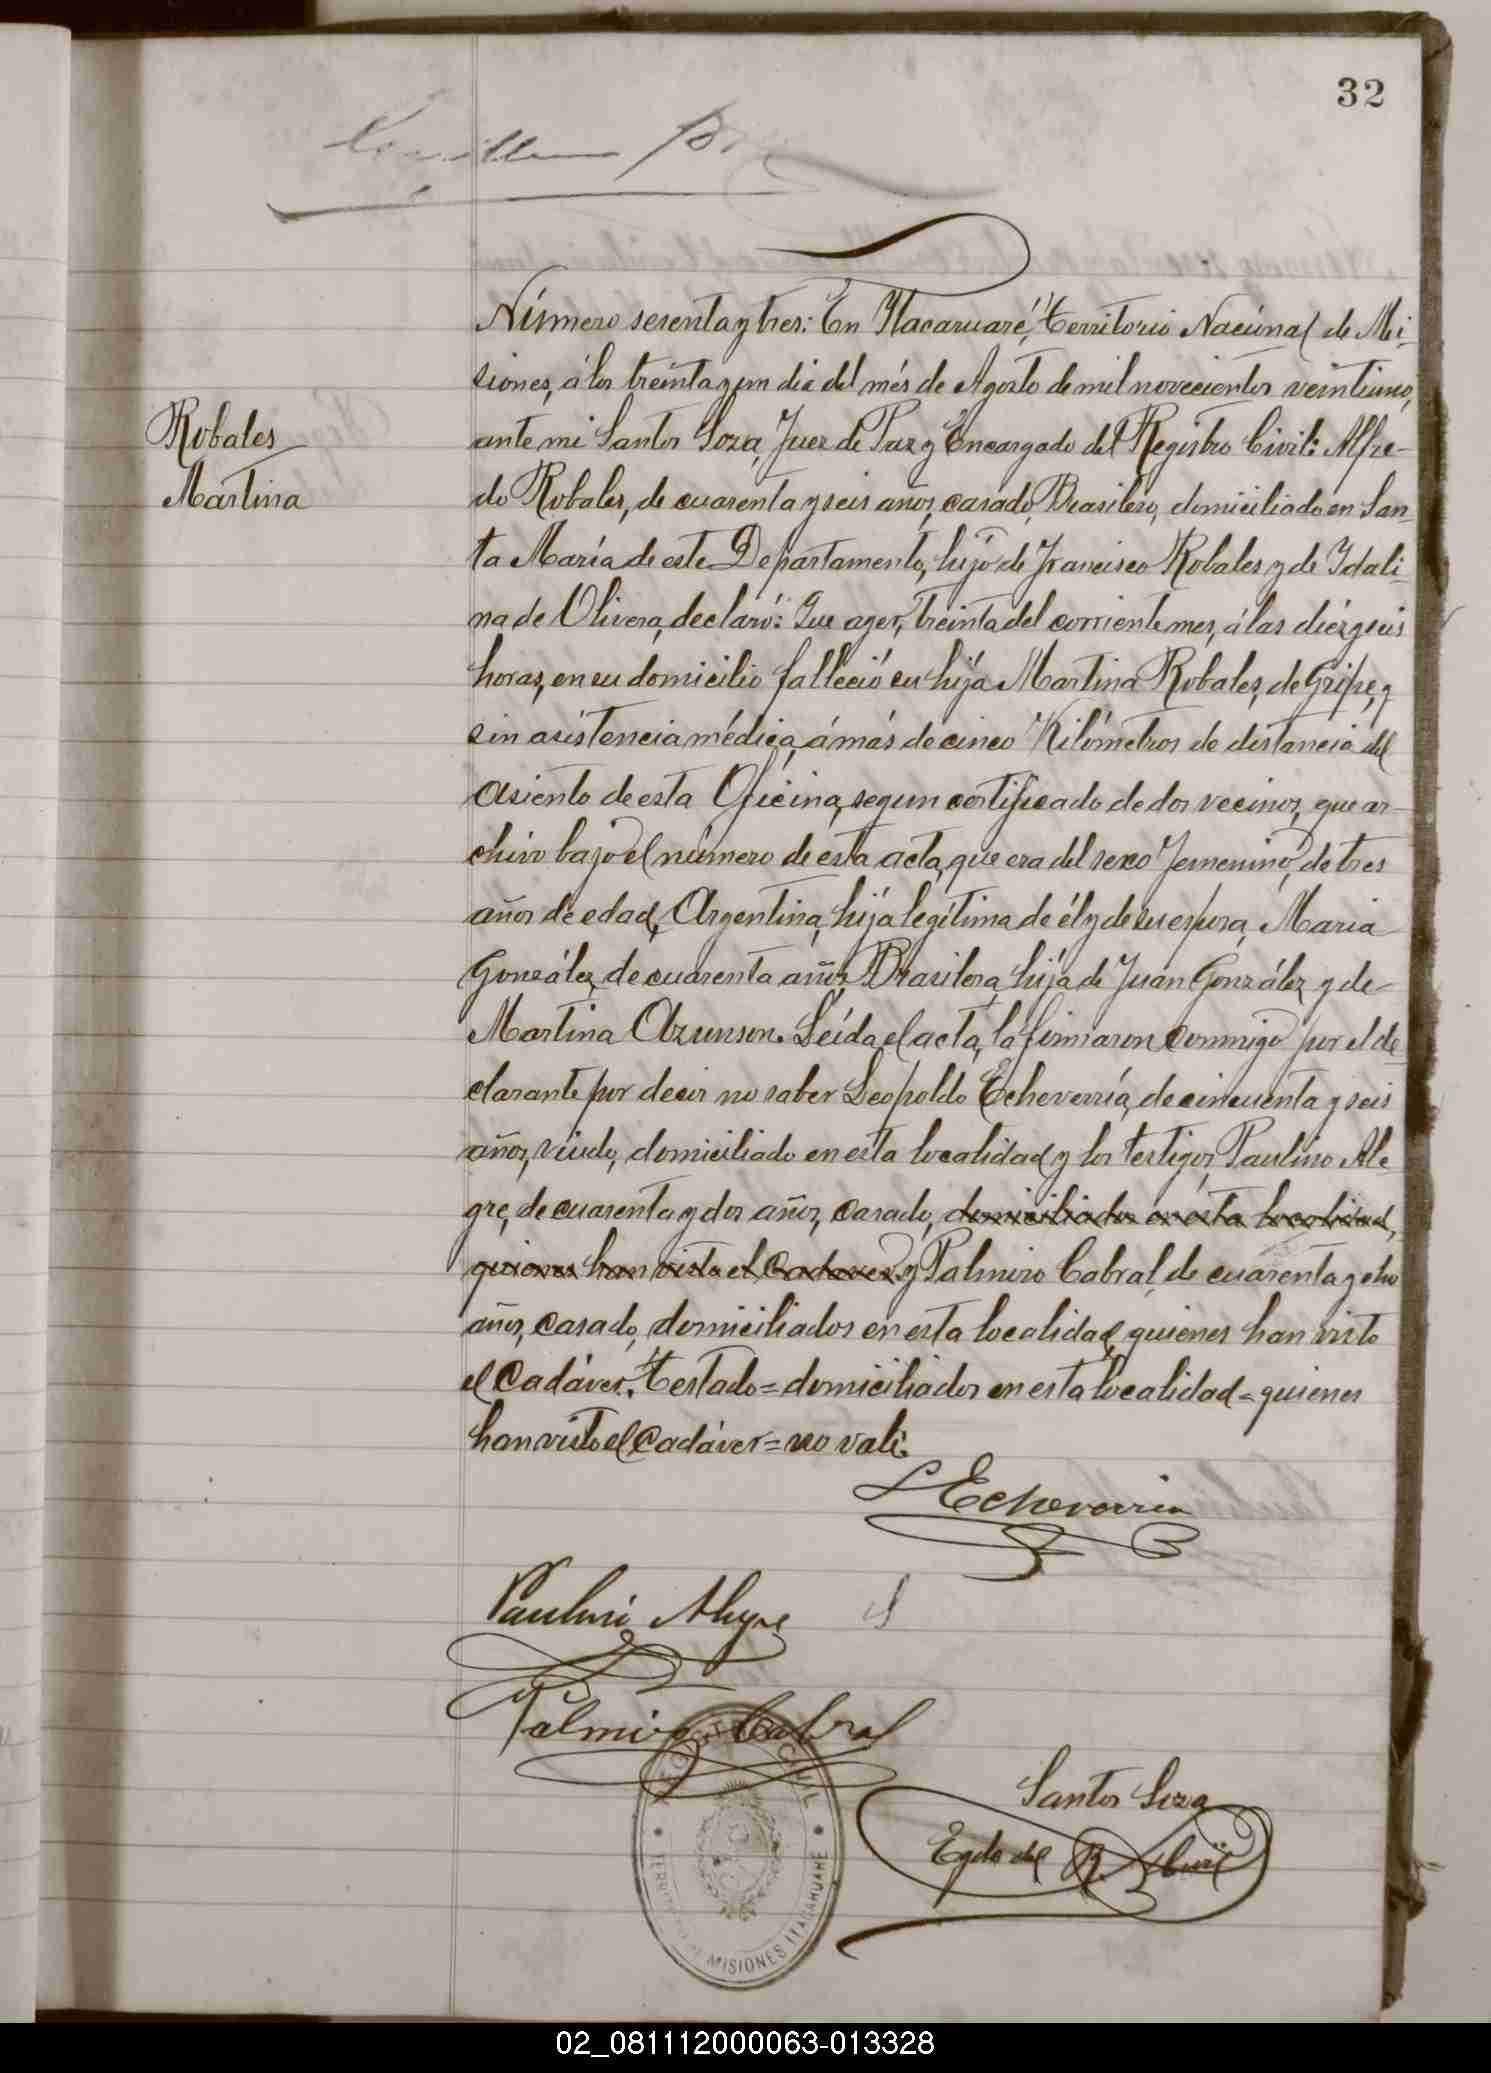 32
Número sesenta y tres: En Itacaruaré, Territorio Nacional de Mi-
siones, á los treinta y un dia del més de Agosto de mil novecientos veintiuno,
ante mi Santos Soza, Juez de Paz y Encargado del Registro Civil: Alfre-
Robales
Martina
do Robales, de cuarenta y seis años, casado, Brasilero, domiciliado en San-
ta María de este Departamento, hijo de Francisco Robales y de Idali-
na de Olivera, declaró: Que ayer, treinta del corriente mes, á las diéz y seis
horas, en su domicilio falleció su hija Martina Robales, de Gripe, y
sin asistencia médica, á más de cinco Kilómetros de distancia del
asiento de esta Oficina, segun certificado de dos vecinos, que ar-
chivo bajo el número de esta acta, que era del sexo Femenino, de tres
años de edad, Argentina, hija legítima de él y de su esposa, Maria
González, de cuarenta años, Brasilera, hija de Juán González y de
Martina Ozunson. Leída el acta, la firmaron conmigo por el de-
clarante por decir no saber Leopoldo Echeverría, de cincuenta y seis
años, viudo, domiciliado en esta localidad y los testigos Paulino Ale-
gre, de cuarenta y dos años, casado, domiciliados en esta localidad,
quienes han visto el Cadaver y Palmiro Cabral, de cuarenta y ocho
años, casado, domiciliados en esta localidad, quienes han visto
el Cadáver. Testado = domiciliados en esta localidad = quienes
han visto el Cadáver = no vale.
L Echeverria
Paulino Alegre
Palmiro Cabral
Santos Soza
Egdo del R. Civil
REGISTRO CIVIL
TERRITORIO DE MISIONES ITACAHUARÉ
02_081112000063-013328